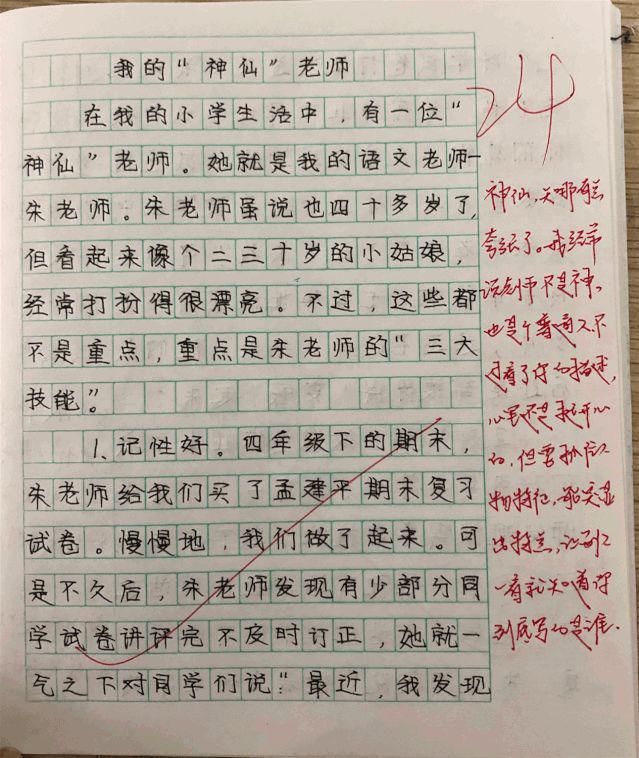 我的“神仙”老师
在我的小学生活中，有一位“
神仙”老师。她就是我的语文老师—
朱老师。朱老师虽说也四十多岁了，
但看起来像个二三十岁的小姑娘，
经常打扮得很漂亮。不过，这些都
不是重点，重点是朱老师的“三大
技能”。
1、记性好。四年级下的期末，
朱老师给我们买了孟建平期末复习
试卷。慢慢地，我们做了起来。可
是不久后，朱老师发现有少部分同
学试卷讲评完不及时订正，她就一
气之下对同学们说：“最近，我发现
24
神仙，
夸张了。我经常
说老师不是神，
也是个普通人，不
过看了你的描述，
心里还是挺开心
的，但要抓住人
物特征，突显
出特点，让别人
一看就知道你
到底写的是谁。